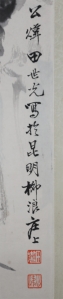 公燁田世光寫於昆明柳浪莊上